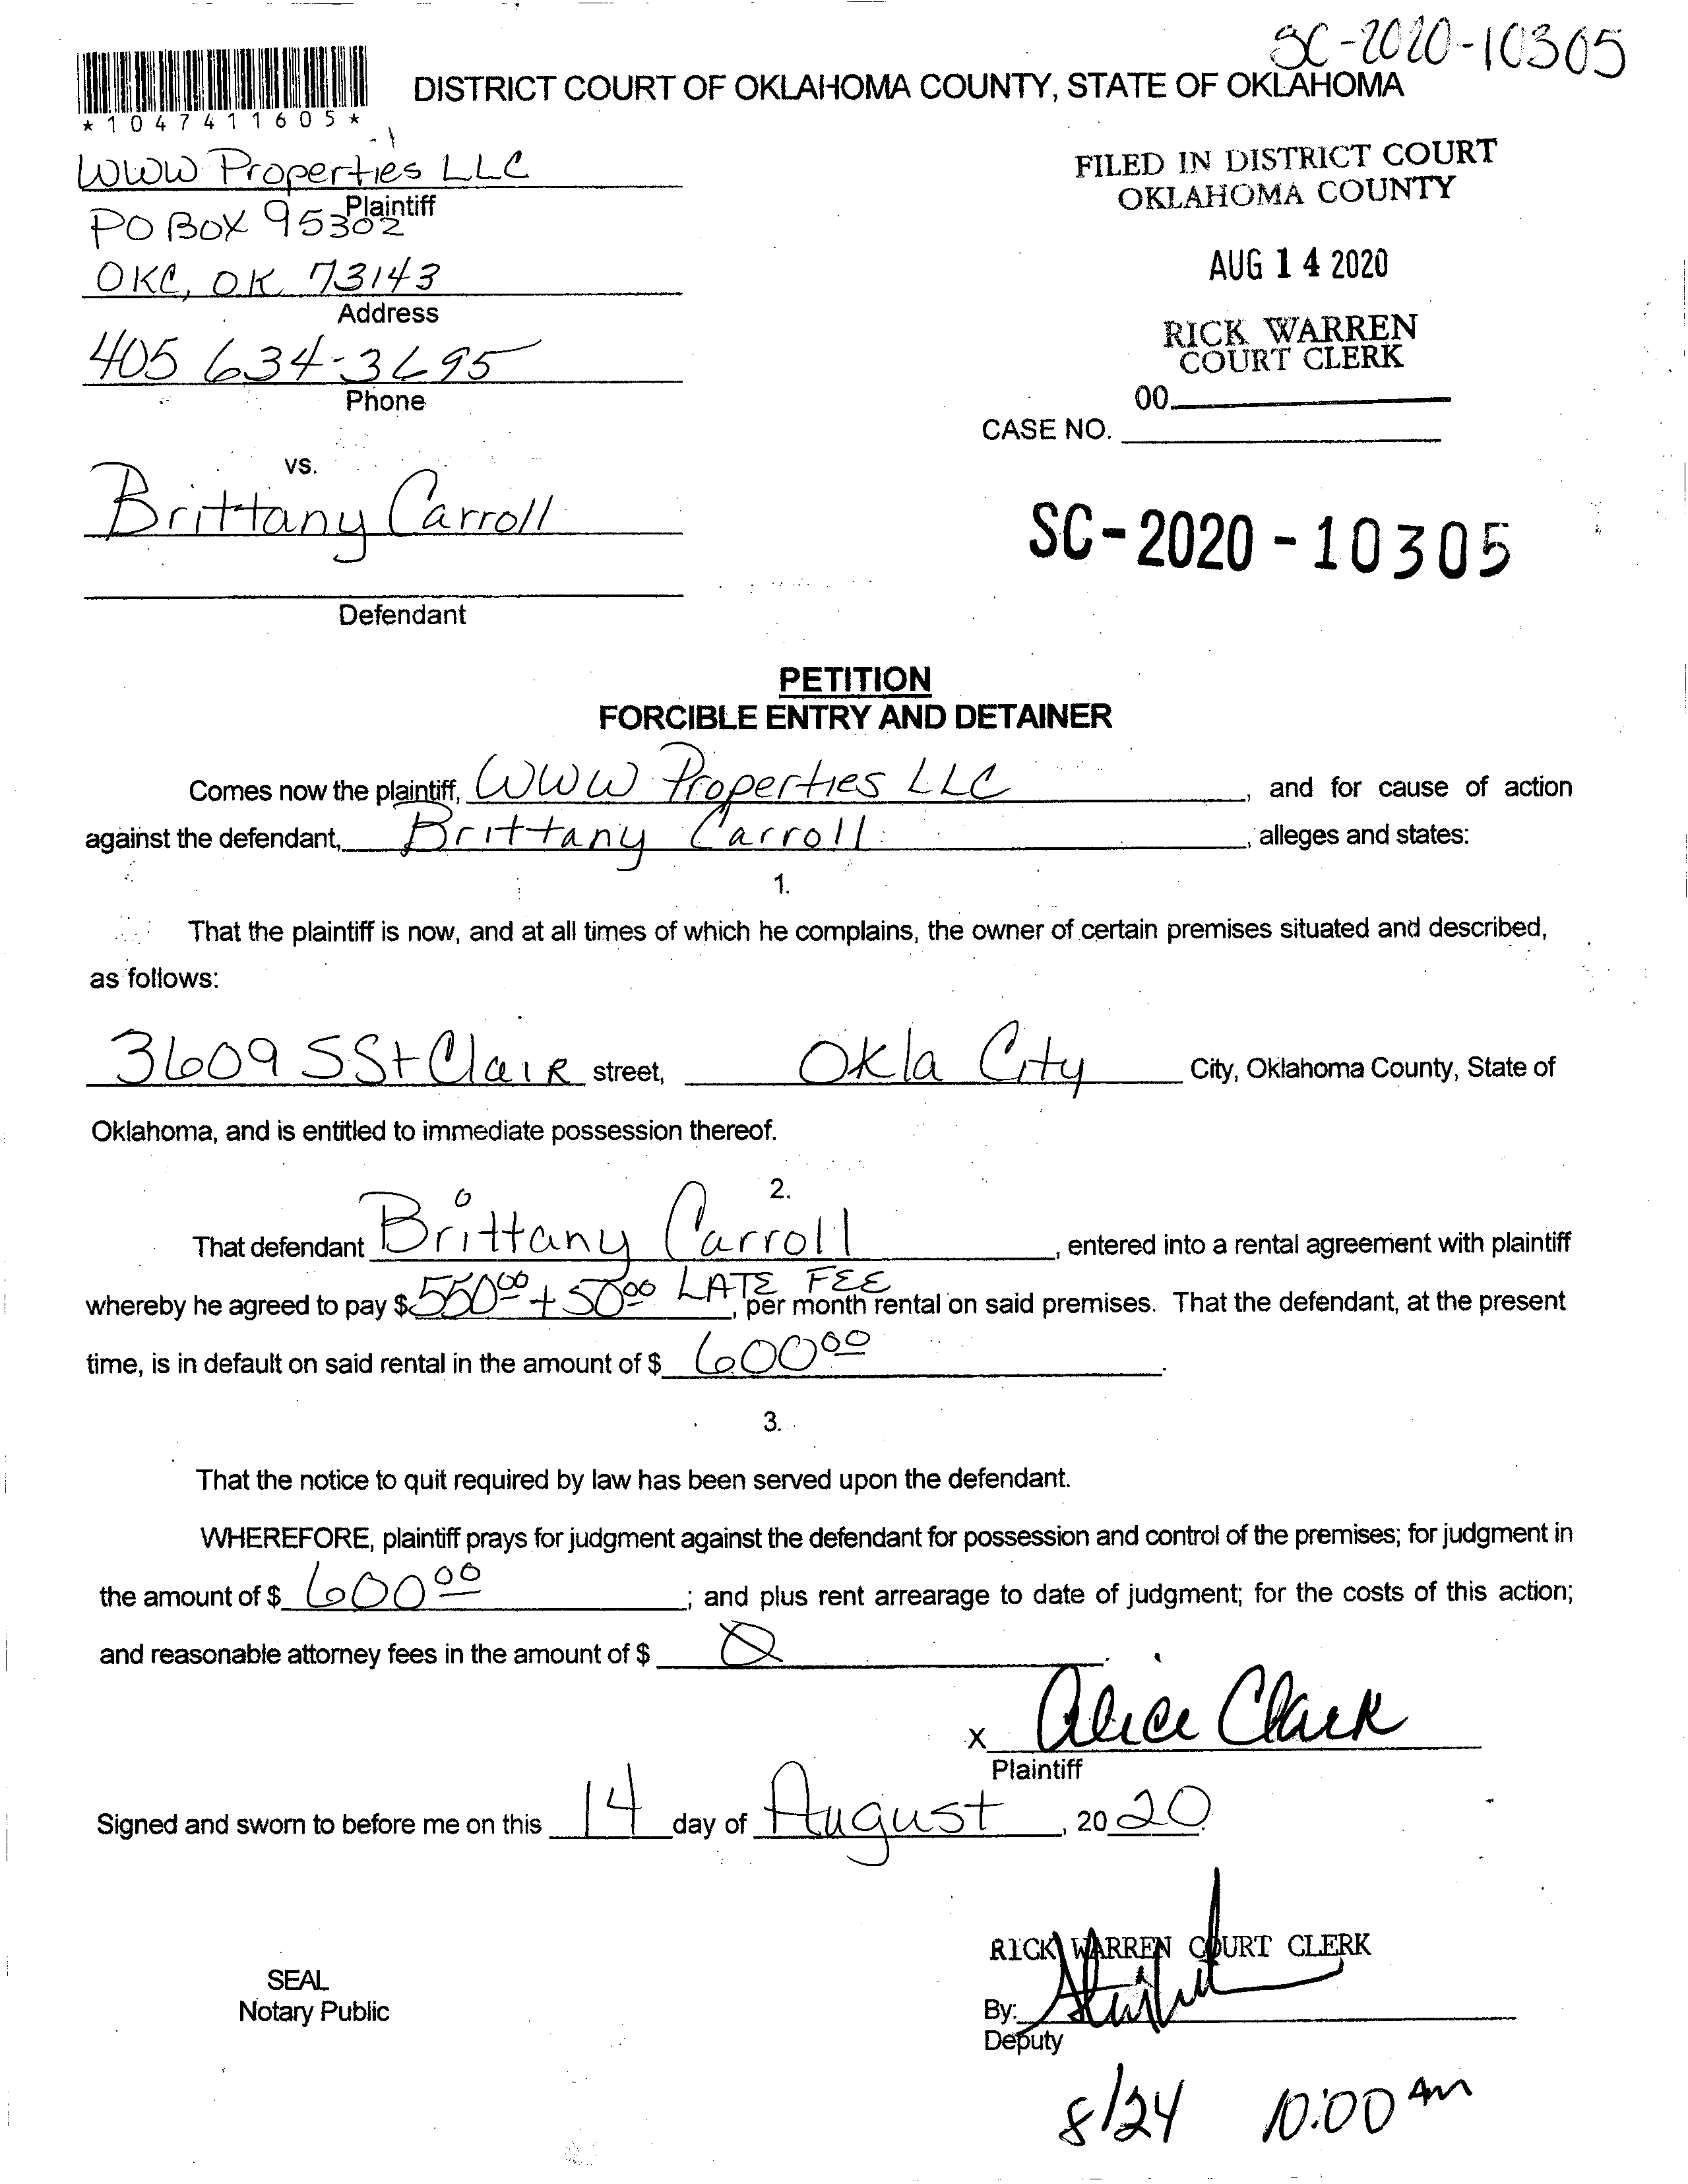 SC-2020-10305
*1047411605*
DISTRICT COURT OF OKLAHOMA COUNTY, STATE OF OKLAHOMA
WWW Properties LLC
Plaintiff
PO BOX 95302
OKC, OK 73143
Address
405 634-3695
Phone
FILED IN DISTRICT COURT
OKLAHOMA COUNTY
AUG 14 2020
RICK WARREN
COURT CLERK
00
CASE NO.
vs.
Brittany Carroll
Defendant
SC-2020-10305
PETITION
FORCIBLE ENTRY AND DETAINER
Comes now the plaintiff, WWW Properties LLC, and for cause of action
against the defendant, Brittany Carroll, alleges and states:
1.
That the plaintiff is now, and at all times of which he complains, the owner of certain premises situated and described,
as follows:
3609 S St Clair street, Okla City City, Oklahoma County, State of
Oklahoma, and is entitled to immediate possession thereof.
2.
That defendant Brittany Carroll, entered into a rental agreement with plaintiff
whereby he agreed to pay $ 550 00 + 50 00 LATE FEE, per month rental on said premises. That the defendant, at the present
time, is in default on said rental in the amount of $ 600 00.
3.
That the notice to quit required by law has been served upon the defendant.
WHEREFORE, plaintiff prays for judgment against the defendant for possession and control of the premises; for judgment in
the amount of $ 600 00; and plus rent arrearage to date of judgment; for the costs of this action;
and reasonable attorney fees in the amount of $ 0.
x Alice Clark
Plaintiff
Signed and sworn to before me on this 14 day of August, 2020.
RICK WARREN COURT CLERK
SEAL
Notary Public
By:
Deputy
8/24 10:00 AM